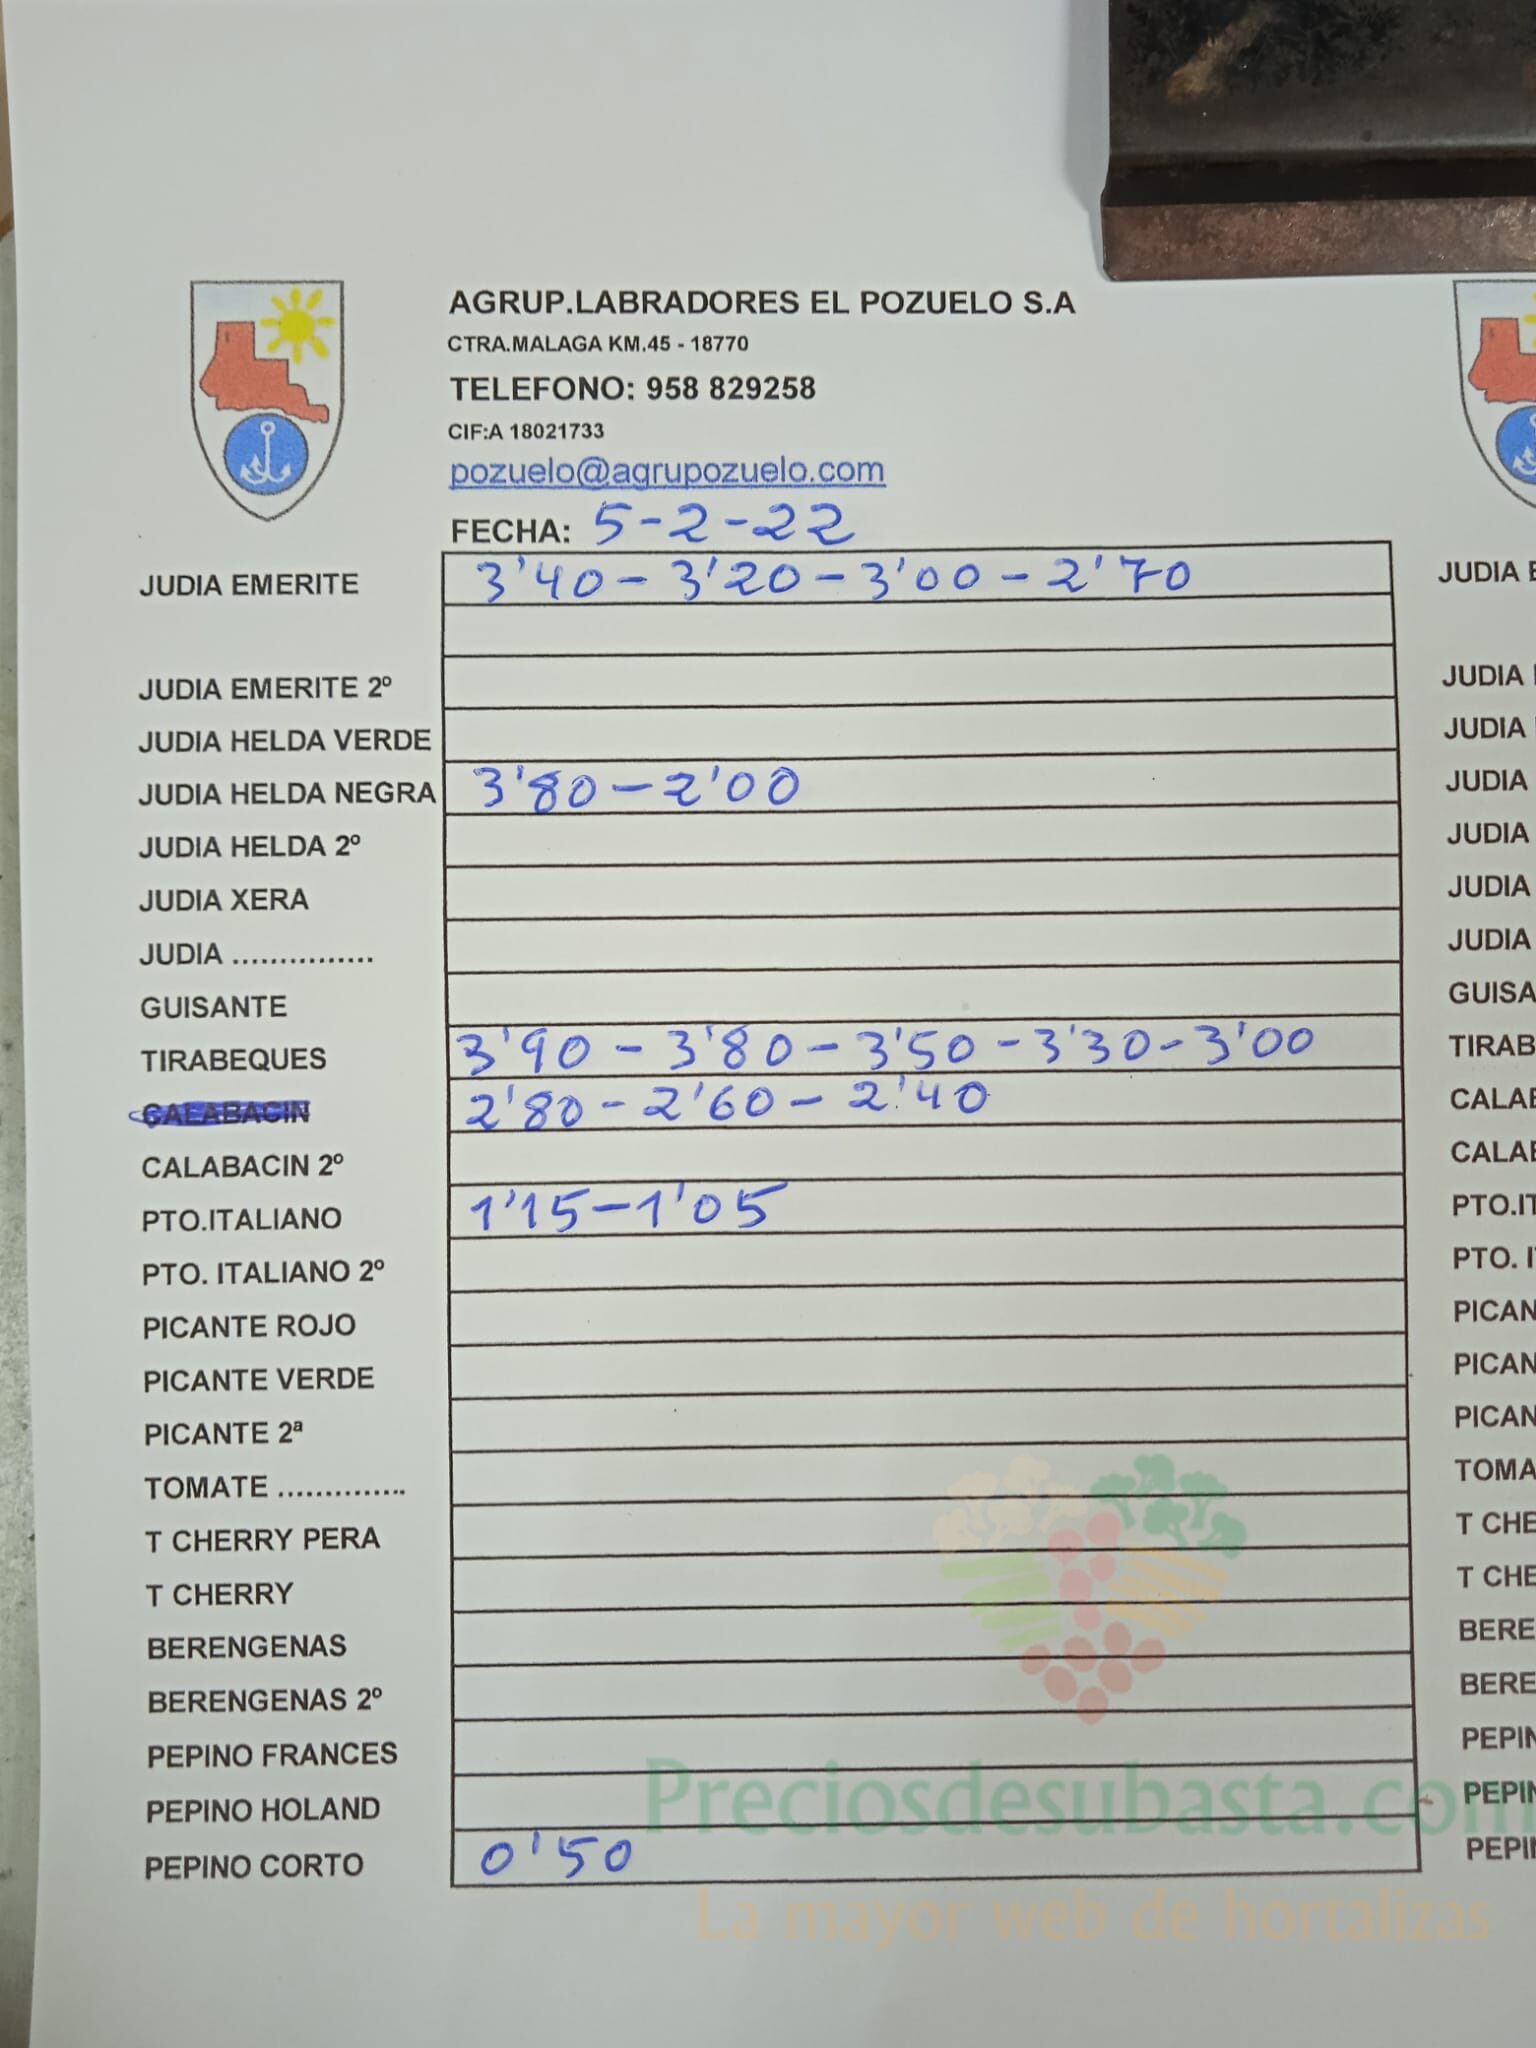 AGRUP.LABRADORES EL POZUELO S.A
CTRA.MALAGA KM.45 - 18770
TELEFONO: 958 829258
CIF:A 18021733
pozuelo@agrupozuelo.com
FECHA: 5-2-22
JUDIA EMERITE 3'40 - 3'20 - 3'00 - 2'70
JUDIA EMERITE 2º
JUDIA HELDA VERDE
JUDIA HELDA NEGRA 3'80 - 2'00
JUDIA HELDA 2º
JUDIA XERA
JUDIA ...............
GUISANTE
TIRABEQUES 3'90 - 3'80 - 3'50 - 3'30 - 3'00
CALABACIN 2'80 - 2'60 - 2'40
CALABACIN 2º
PTO.ITALIANO 1'15 - 1'05
PTO. ITALIANO 2º
PICANTE ROJO
PICANTE VERDE
PICANTE 2ª
TOMATE ..............
T CHERRY PERA
T CHERRY
BERENGENAS
BERENGENAS 2º
PEPINO FRANCES
PEPINO HOLAND
PEPINO CORTO 0'50
JUDIA
JUDIA
JUDIA
JUDIA
JUDIA
JUDIA
JUDIA
PTO.
T
T
Preciosdesubasta.com
La mayor web de hortalizas